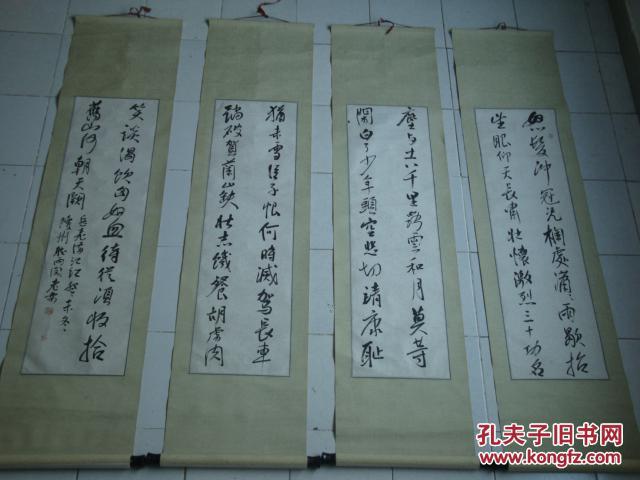 怒髮冲冠凭欄處瀟瀟雨歇抬
望眼仰天長嘯壯懷激烈三十功名
塵与土八千里路雲和月莫等
閑白了少年頭空悲切靖康耻
猶未雪臣子恨何時滅駕長車
踏破賀蘭山缺壯志饑餐胡虜肉
笑談渴飲匈奴血待從頭收拾
舊山河朝天闕 岳飛滿江紅 癸未冬
孔夫子旧书网
www.kongfz.com